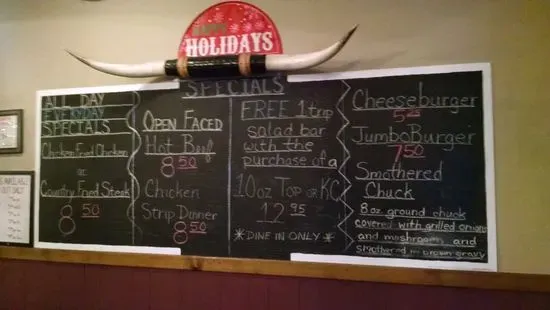 HOLIDAYS
SPECIALS
ALL DAY
EVERYDAY
SPECIALS
Chicken Fried Chicken
or
Country Fried Steak
8 50
OPEN FACED
Hot Beef
8 50
Chicken
Strip Dinner
8 50
FREE 1 trip
salad bar
with the
purchase of a
10oz Top or KC
12 95
*DINE IN ONLY*
Cheeseburger
5 25
Jumbo Burger
7 50
Smothered
Chuck
8oz ground chuck
covered with grilled onions
and mushrooms and
smothered in brown gravy